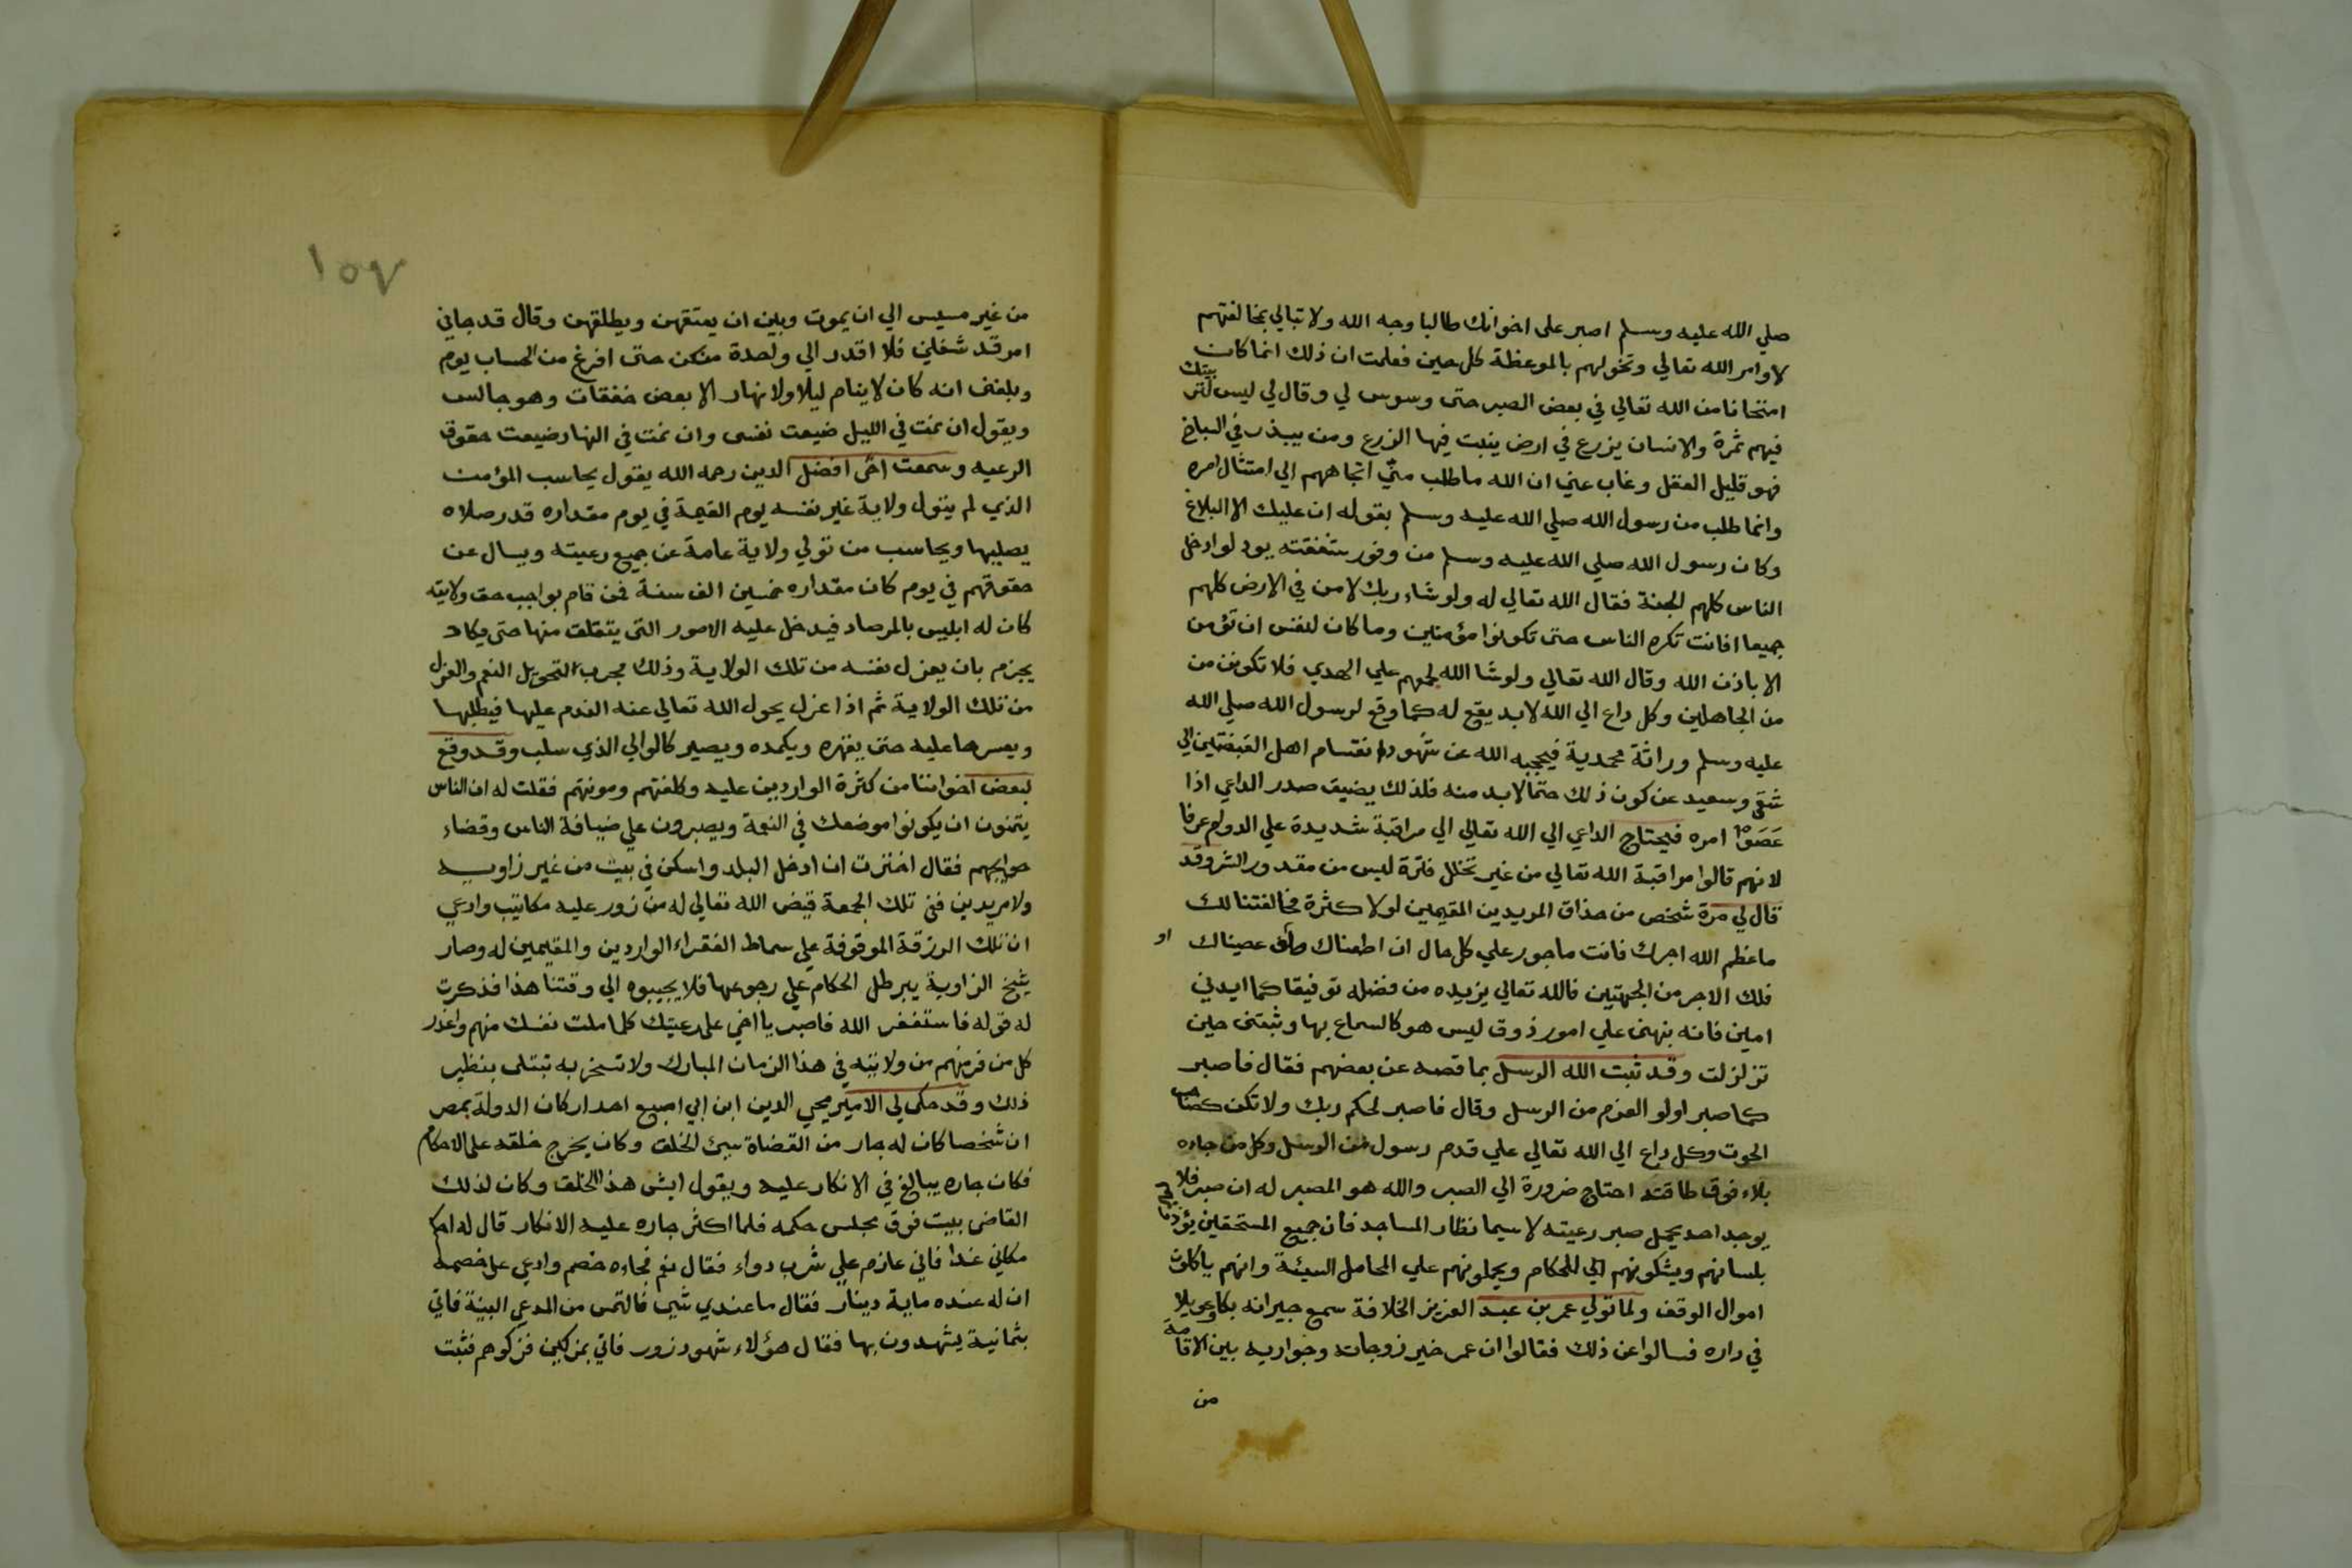 صلي الله عليه وسلم اصبر على اخوانك طالبا وجه الله ولا تبالي بمخالفتهم
لاوامر الله تعالي وتخولهم بالموعظة كل حين فعلمت ان ذلك انما كان
امتحانا من الله تعالي في بعض الصبر حتى وسوس لي وقال لي ليس لتربيتك
فيهم ثمرة والانسان يزرع في ارض ينبت فيها الزرع ومن يبذر في السباخ
فهو قليل العقل وغاب عني ان الله ما طلب مني اتجاههم الي امتثال امره
وانما طلب من رسول الله صلي الله عليه وسلم بقوله ان عليك الا البلاغ
وكان رسول الله صلي الله عليه وسلم من وفور شفقته يود لو ادخل
الناس كلهم الجنة فقال الله تعالي له ولو شاء ربك لامن في الارض كلهم
جميعا افانت تكره الناس حتى تكونوا مؤمنين وما كان لنفس ان تؤمن
الا باذن الله وقال الله تعالي ولو شا الله لجمعهم علي الهدي فلا تكونن من
من الجاهلين وكل داع الي الله لابد يقع له كما وقع لرسول الله صلي الله
عليه وسلم وراثة محمدية فيحجبه الله عن شهود انقسام اهل القبضتين الي
شقي وسعيد عن كون ذلك حتما لابد منه فلذلك يضيق صدر الداعي اذا
عصوا امره فيحتاج الداعي الي الله تعالي الي مراقبة شديدة علي الدوام عرفا
لانهم قالوا مراقبة الله تعالي من غير تخلل فترة ليس من مقدور البشر وقد
قال لي مرة شخص من حذاق المريدين المقيمين لولا كثرة مخالفتنا لك
ما عظم الله اجرك فانت ماجور علي كل حال ان اطعناك او عصيناك
فلك الاجر من الجهتين فالله تعالي يزيده من فضله توفيقا كما ايدني
امين فانه نبهني علي امور ذوق ليس هو كالسماع بها وثبتني حين
تزلزلت وقد ثبت الله الرسل بما قصه عن بعضهم فقال فاصبر
كما صبر اولو العزم من الرسل وقال فاصبر لحكم ربك ولا تكن كصاحب
الحوت وكل داع الي الله تعالي علي قدم رسول من الرسل وكل من جاءه
بلاء فوق طاقته احتاج ضرورة الي الصبر والله هو المصبر له ان صبر فلا
يوجد احد يحمل صبر رعيته لا سيما نظار المساجد فان جميع المستحقين يؤذونهم
بلسانهم ويشكونهم الي للحكام ويحملونهم علي المحامل السيئة وانهم ياكلون
اموال الوقف ولما تولي عمر بن عبد العزيز الخلافة سمع جيرانه بكا وعويلا
في داره فسالوا عن ذلك فقالوا ان عمر خير زوجاته وجواريه بين الاقامة
من
١٥٧
من غير مسيس الي ان يموت وبين ان يعتقهن ويطلقهن وقال قد جاني
امر قد شغلني فلا اقدر الي واحدة منكن حتى افرغ من الحساب يوم
وبلغني انه كان لا ينام ليلا ولا نهار الا بعض خفقات وهو جالس
ويقول ان نمت في الليل ضيعت نفسي وان نمت في النهار ضيعت حقوق
الرعيه وسمعت اخي افضل الدين رحمه الله يقول يحاسب المؤمن
الذي لم يتول ولاية غير نفسه يوم القيمة في يوم مقداره قدر صلاه
يصليها ويحاسب من تولي ولاية عامة عن جميع رعيته ويسال عن
حقوقهم في يوم كان مقداره خمسين الف سنة فمن قام بواجب حق ولايته
كان له ابليس بالمرصاد فيدخل عليه الامور التي يتقلق منها حتى يكاد
يجزم بان يعزل نفسه من تلك الولاية وذلك مجرب لتحويل النعم والعزل
من تلك الولاية ثم اذا عزل يحول الله تعالي عنه الندم عليها فيطلبها
ويعسرها عليه حتى يقهره ويكمده ويصير كالوالي الذي سلب وقد وقع
لبعض اخواننا من كثرة الواردين عليه وكلفتهم ومونتهم فقلت له ان الناس
يتمنون ان يكونوا موضعك في النعمة ويصبرون علي ضيافة الناس وقضاء
حوايجهم فقال اخترت ان ادخل البلد واسكن في بيت من غير زاويه
ولا مريدين ففي تلك الجمعة قيض الله تعالي له من زور عليه مكاتيب وادعي
ان تلك الرزقة الموقوفة علي سماط الفقراء الواردين والمقيمين له وصار
شيخ الزاوية يبرطل الحكام علي رجوعها فلا يجيبوه الي وقتنا هذا فذكرت
له قوله فاستغفر الله فاصبر يا اخي علي رعيتك كلما ملت نفسك منهم واعذر
كل من فر منهم من ولايته في هذا الزمان المبارك ولا تسخر به تبتلى بنظير
ذلك وقد حكى لي الامير محيي الدين ابن ابي اصبع احد اركان الدولة بمصر
ان شخصا كان له جار من القضاة سيئ الخلق وكان يخرج خلقه على الاحكام
فكان جاره يبالغ في الانكار عليه ويقول ايش هذا الخلق وكان لذلك
القاضي بيت فوق مجلس حكمه فلما اكثر جاره عليه الانكار قال له احكم
مكاني غدا فاني عازم علي شرب دواء فقال نعم فجاءه خصم وادعي على خصمه
ان له عنده ماية دينار فقال ما عندي شي فالتمس من المدعي البينة فاتي
بثمانية يشهدون بها فقال هؤلاء شهود زور فاتي بمزكين فزكوهم فثبت